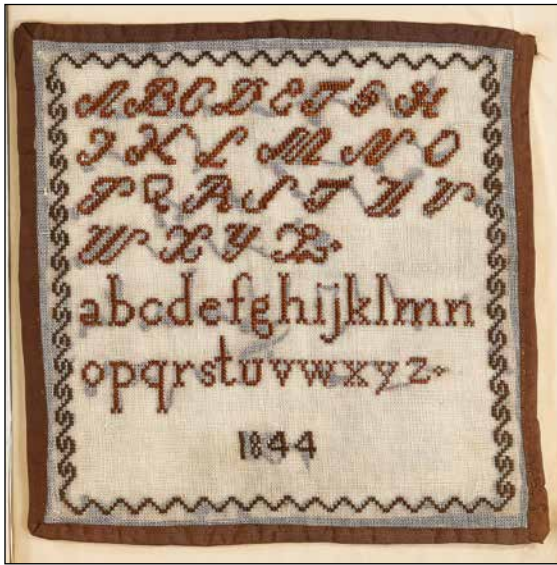 A B C D E F G H
I K L M N O
P Q R S T U V
W X Y Z
abcdefghijklmn
opqrstuvwxyz
1844